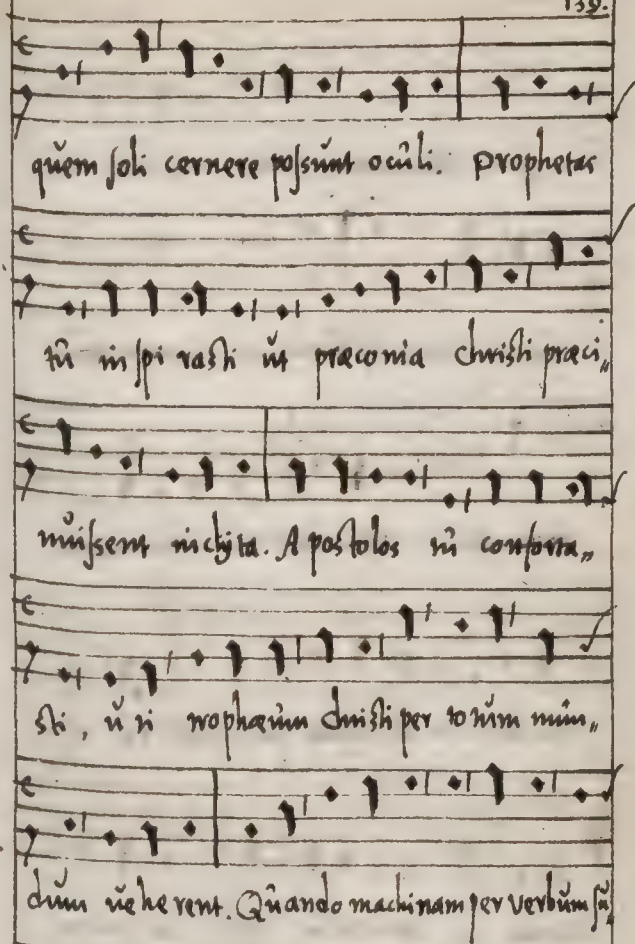 139.
quem soli cernere possunt oculi. Prophetas
tu inspirasti ut præconia christi præci„
nuissent inclyta. Apostolos tu conforta„
sti, uti trophæum christi per totum mun„
dum ueherent. Quando machinam per verbum su„